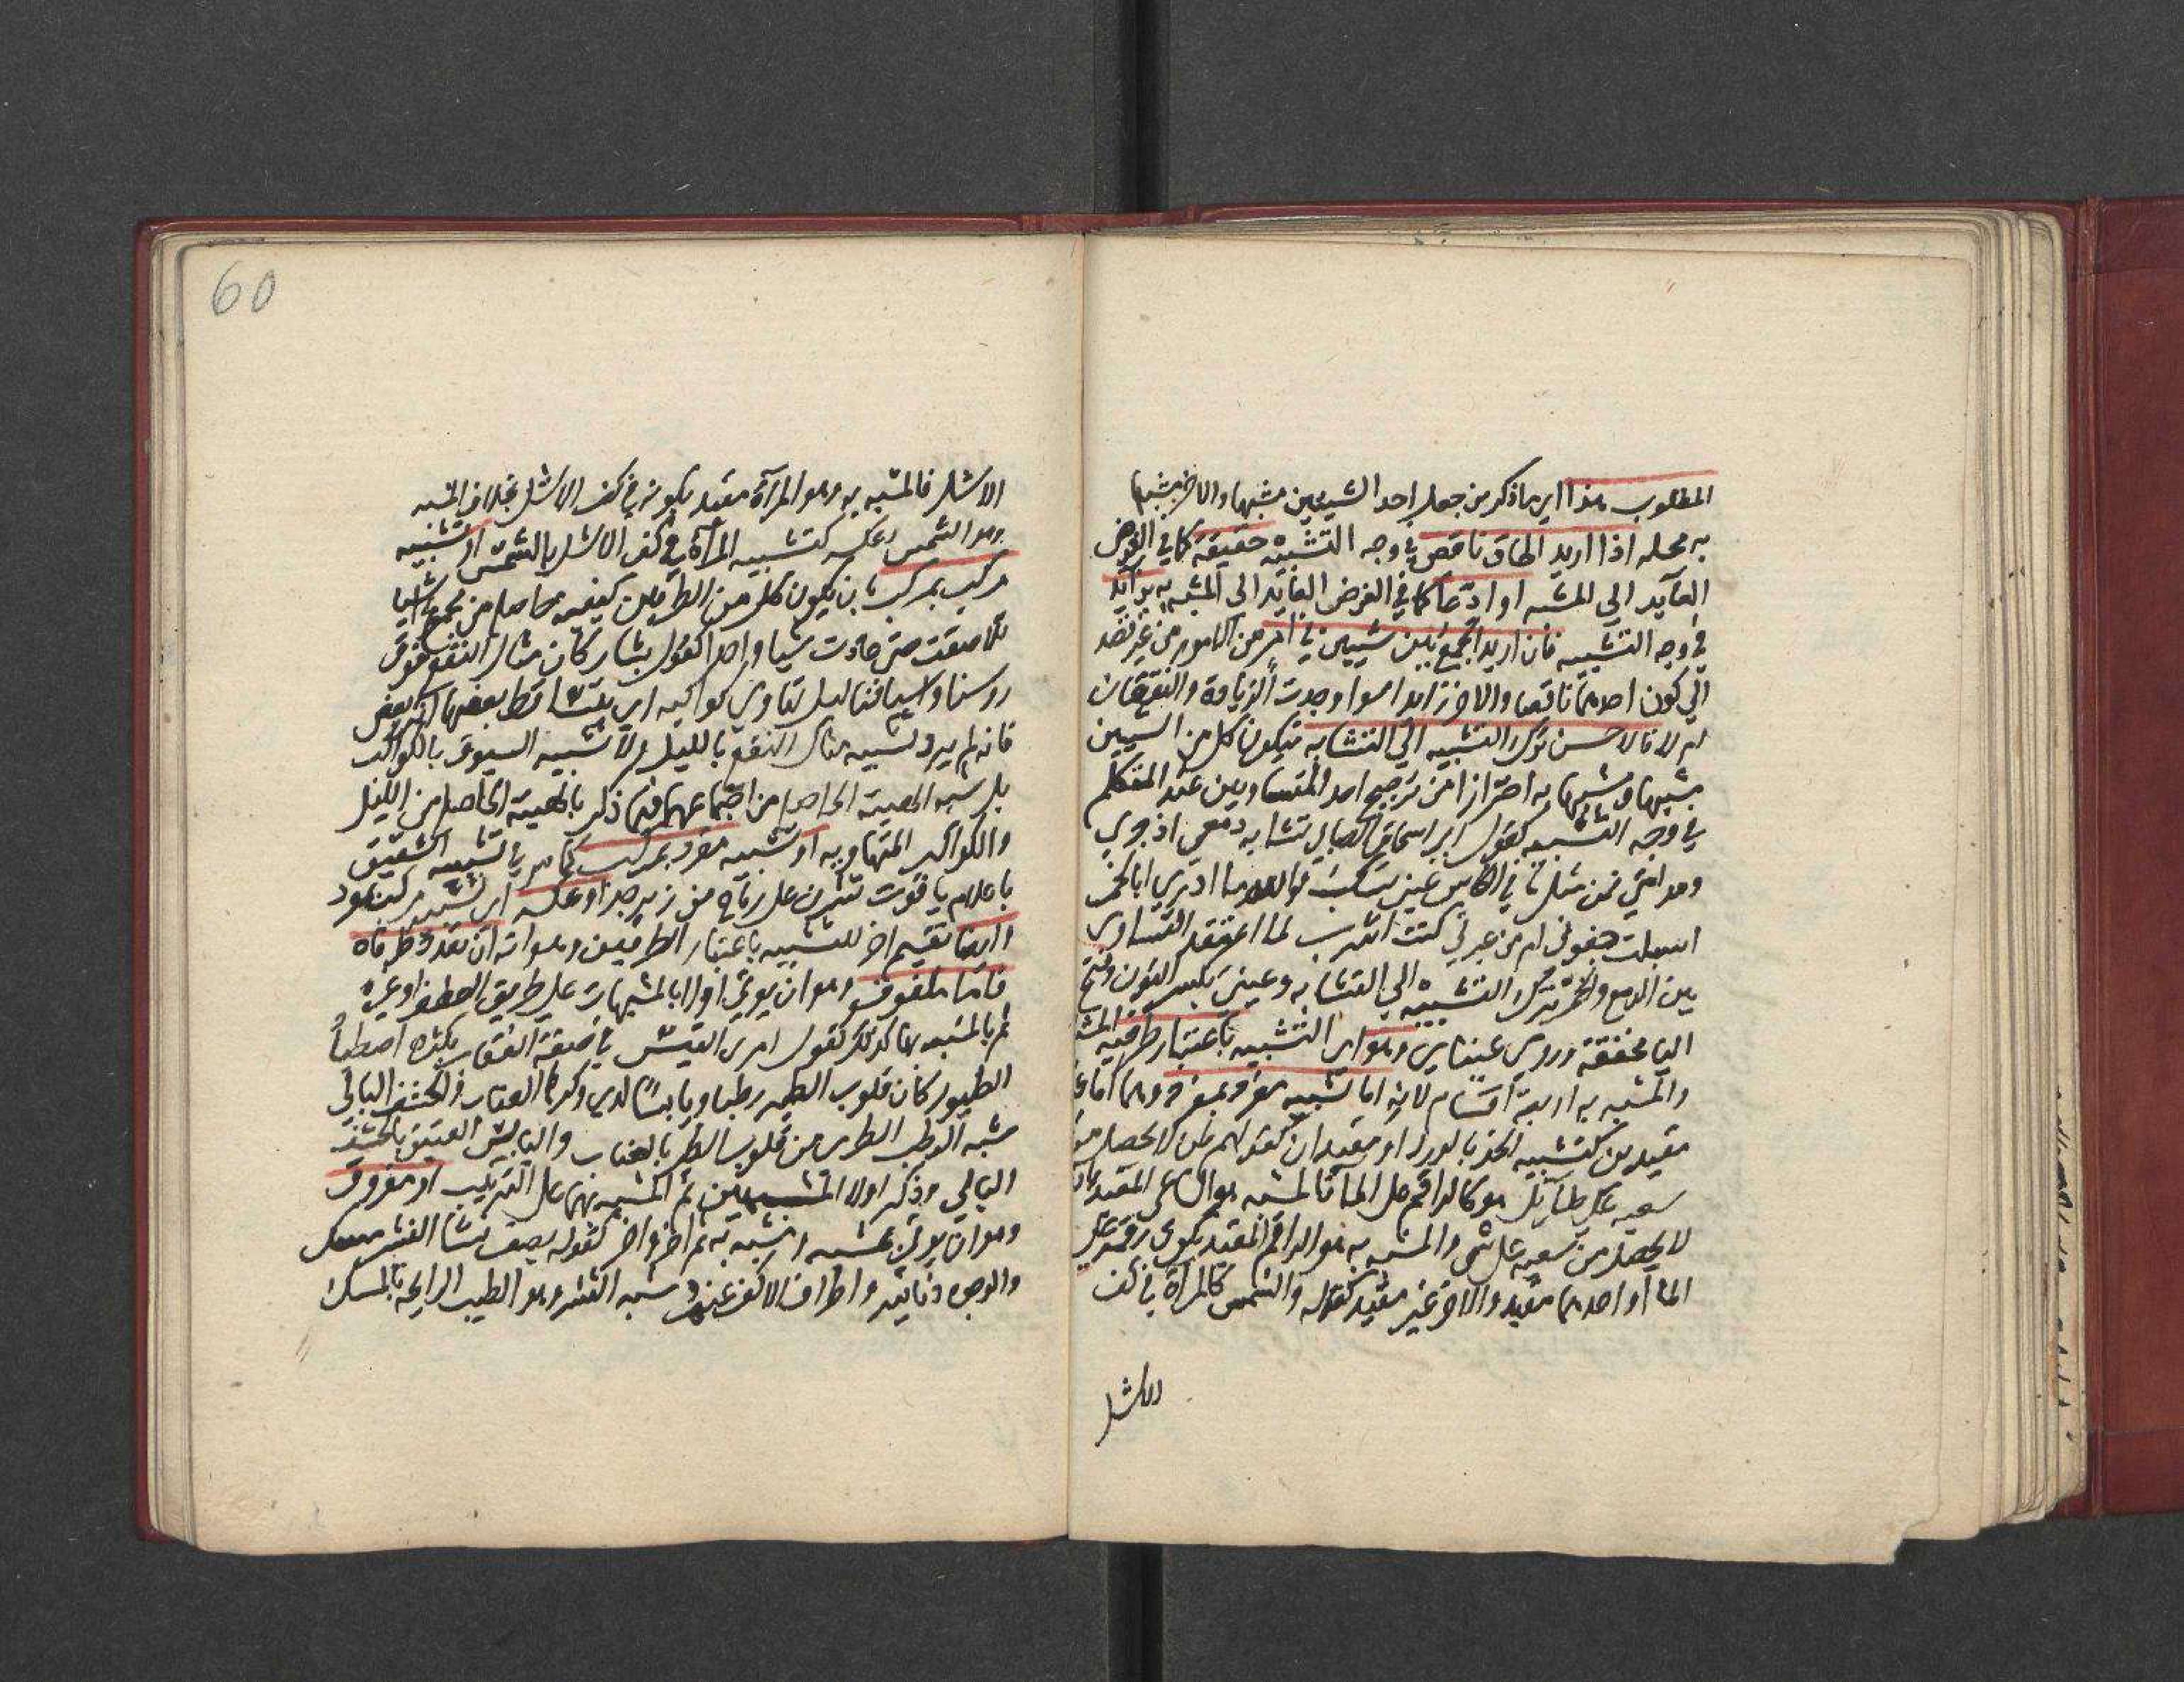 المطلوب هذا اي ما ذكر من جعل احد الشيئين مشبها والاخر مشبها
به محله اذا اريد الحاق ناقص في وجه التشبيه حقيقة كما في الغرض
العآيد الي المشبه او ادعا كما في الغرض العايد الى المشبه به بزآيد
في وجه التشبيه فان اريد الجمع بين شيين في امر من الامور من غير قصد
الي كون احدهما ناقصا والاخر زايدا سوا وجدت الزيادة والنقصان
ام لا فالاحسن ترك التشبيه الي التشابه فيكون كل من الشيين
مشبها ومشبها به احترازا من ترجيح احد المتساويين عند المتكلم
في وجه التشبيه كقول ابي اسحاق الصابي تشابه دمعي اذ جري
ومدامتي فمن مثل ما في الكاس عيني تسكب فوالله ما ادري ابالخمر
اسبلت جفوني ام من عبرتي كنت اشرب لما اعتقد التساوي
بين الدمع والخمر ترك التشبيه الي التشابه وعيني بكسر النون وفتح
اليا مخففة وروي عيناي وهو اي التشبيه باعتبار طرفيه المشبه
والمشبه به اربعة اقسام لانه اما تشبيه مفرد بمفرد وهما اما غير
مقيدين كتشبيه الخد بالورد او مقيدان كقولهم لمن لا يحصل من
سعيه علي طآيل هو كالراقم علي الما فالمشبه هو الساعي المقيد بان
لا يحصل من سعيه علي شي والمشبه به هو الراقم المقيد بكون رقمه علي
الما او احدهما مقيد والاخر غير مقيد كقوله والشمس كالمراة في كف
الاشل
60
الاشل فالمشبه به وهو المرآة مقيد بكونه في كف الاشل بخلاف المشبه
وهو الشمس وعكسه كتشبيه المرآة في كف الاشل بالشمس او تشبيه
مركب بمركب بان يكون كل من الطرفين كيفيه حاصله من مجموع اشيا
تلاصقت حتى عادت شيا واحدا كقول بشار كان مثار النقع فوق
روسنا واسيافنا ليل تهاوي كواكبه اي يتساقط بعضها اثر بعض
فانه لم يرد تشبيه مثار النقع بالليل ولا تشبيه السيوف بالكواكب
بل شبه الهيئة الحاصل من اجتماعهما فيما ذكر بالهيئة الحاصل من الليل
والكواكب المتهاويه او تشبيه مفرد بمركب كما مر في تشبيه الشقيق
باعلام ياقوت نشرن على رماح من زبرجد او عكسه اي تشبيه مركب بمفرد
وايضا تقسيم اخر للتشبيه باعتبار الطرفين وهو انه ان تعدد طرفاه
فاما ملفوف وهو ان يوتي اولا بالمشبهات علي طريق العطف او غيره
ثم بالمشبه بها كذلك كقول امرى القيس في صفة العقاب بكثره اصطياد
الطيور كان قلوب الطير رطبا ويابسا لدي وكرها العناب والحشف البالي
شبه الرطب الطري من قلوب الطير بالعناب واليابس العتيق بالحشف
البالي وذكر اولا المشبهين ثم المشبه بهما على الترتيب او مفروق
وهو ان يوتي بمشبه ومشبه به ثم اخر واخر كقوله يصف نسا النشر مسك
والوجوه دنانير واطراف الاكف عنم شبه النشر وهو الطيب الرايحه بالمسك